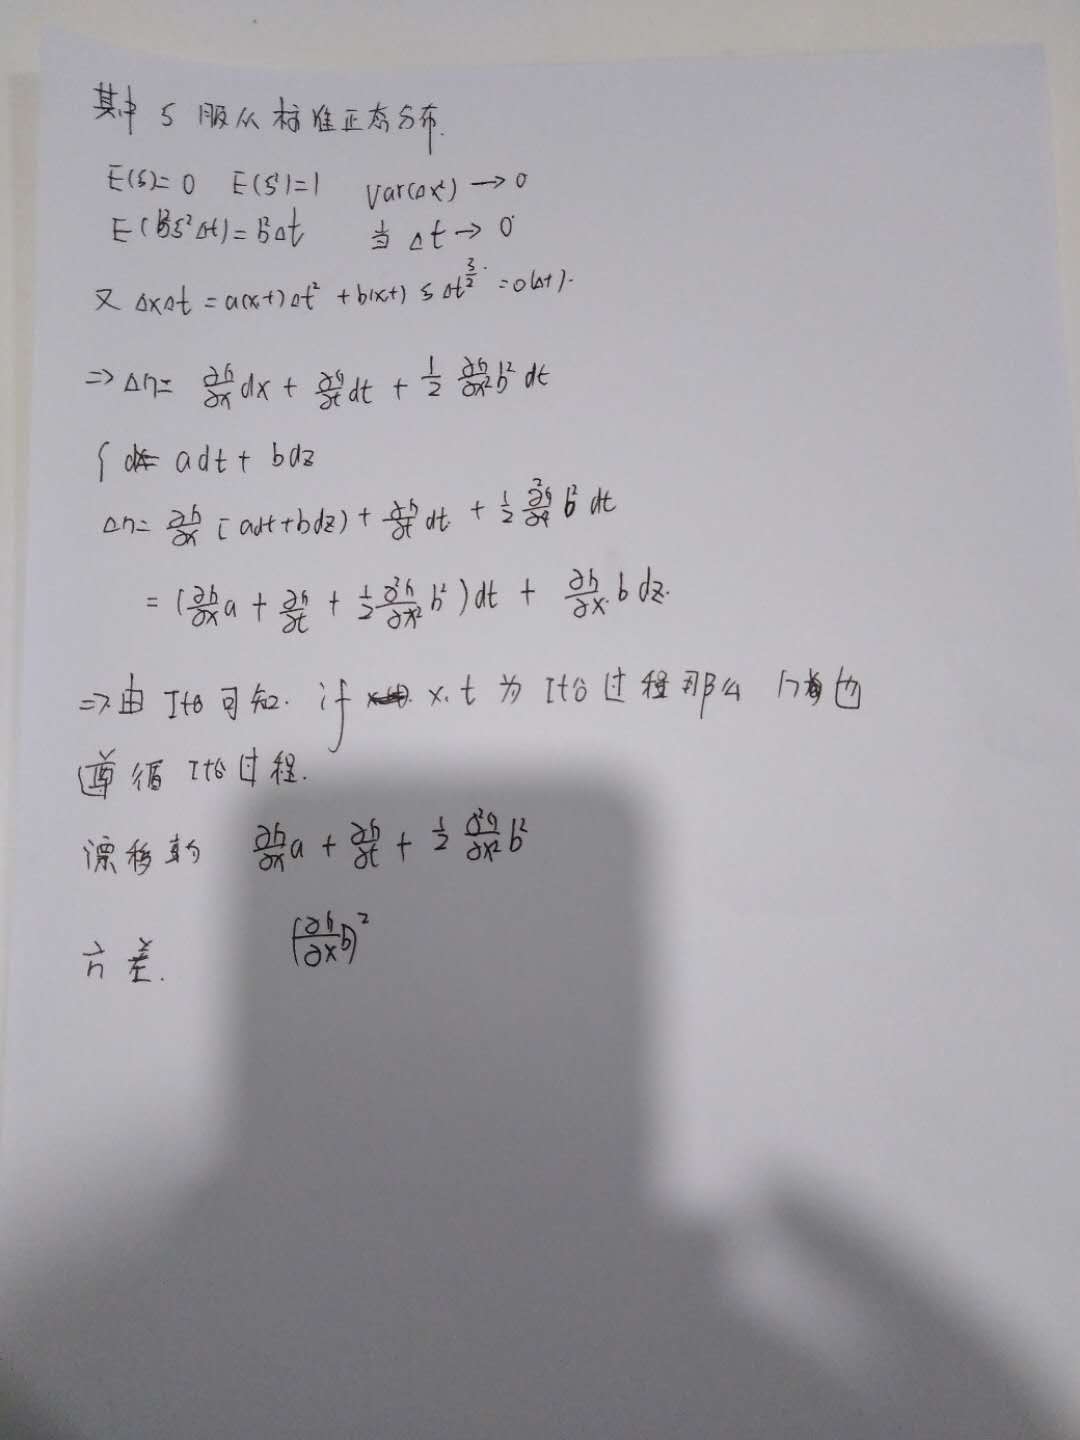 其中 S 服从标准正态分布.
E(S)=0 E(S²)=1 Var(Δx²) → 0
E(B²S²Δt)=B²Δt 当 Δt → 0
又 ΔxΔt = a(x,t)Δt² + b(x,t) S Δt^(3/2) = o(Δt).
⇒ Δh = ∂h/∂x dx + ∂h/∂t dt + 1/2 ∂h/∂x² b² dt
{ dx = adt + bdz
Δh = ∂h/∂x (adt+bdz) + ∂h/∂t dt + 1/2 b² dt
= (∂h/∂x a + ∂h/∂t + 1/2 ∂²h/∂x² b²)dt + ∂h/∂x b dz.
⇒ 由 Itô 可知. if x.t 为 Itô 过程 那么 h 也
遵循 Itô 过程.
漂移 ∂h/∂x a + ∂h/∂t + 1/2 ∂²h/∂x² b²
方差. (∂h/∂x b)²